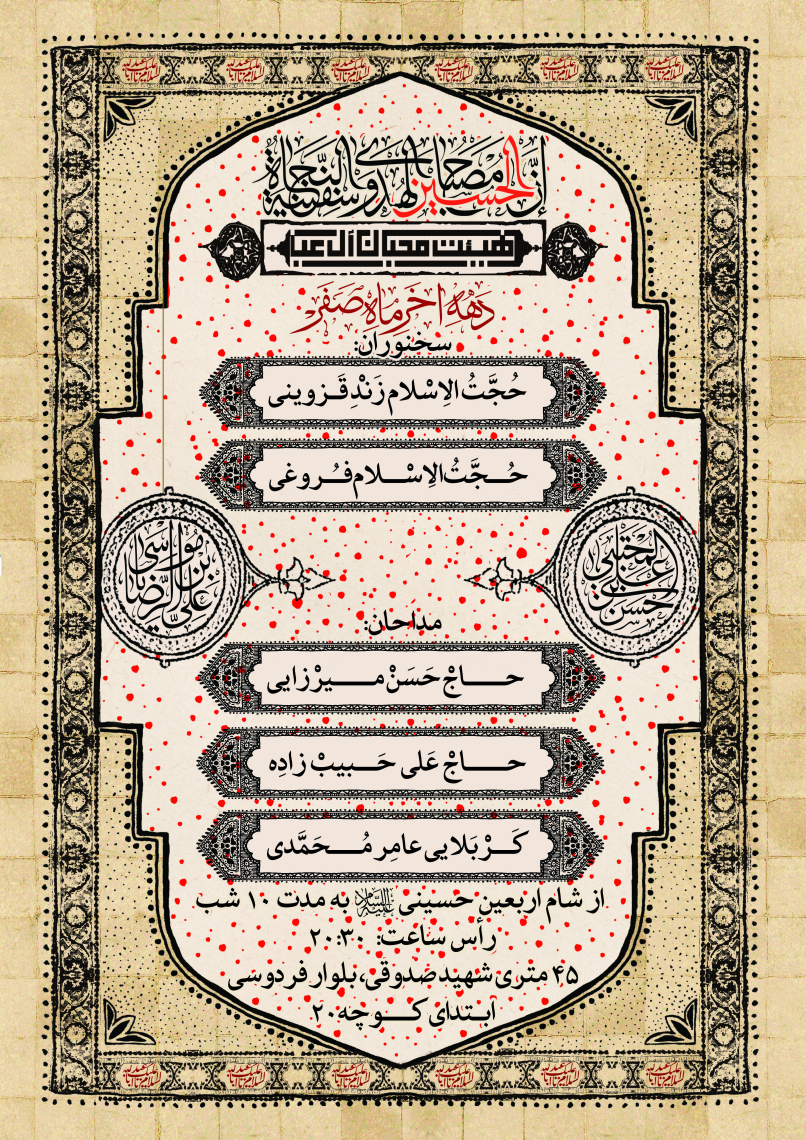 إنّ الحسین مصباح الهدی و سفینة النجاة
هیئت محبان آل عبا
دَههٔ آخَر ماهِ صَفَر
سخنوران:
حُجَّتُ الاِسْلام زَنْدِ قَزوینی
حُجَّتُ الاِسْلام فُروغی
حسن بن علی المجتبی
علی بن موسی الرضا
مداحان:
حاجْ حَسَنْ میرْزایی
حاجْ عَلی حَبیبْ زادِه
کَرْبَلایی عامِر مُحَمَّدی
از شام اربعین حسینی علیه السلام به مدت ۱۰ شب
رأس ساعت: ۲۰:۳۰
۴۵ متری شهید صدوقی، بلوار فردوسی
ابتدای کوچه ۲۰